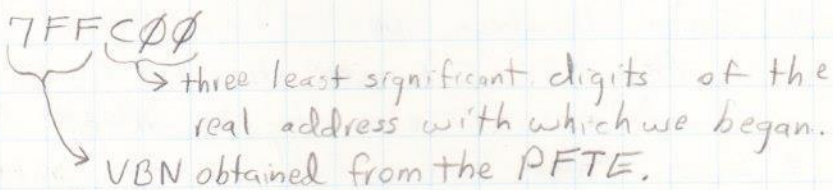 7FFCØØ
three least significant digits of the
real address with which we began.
VBN obtained from the PFTE.